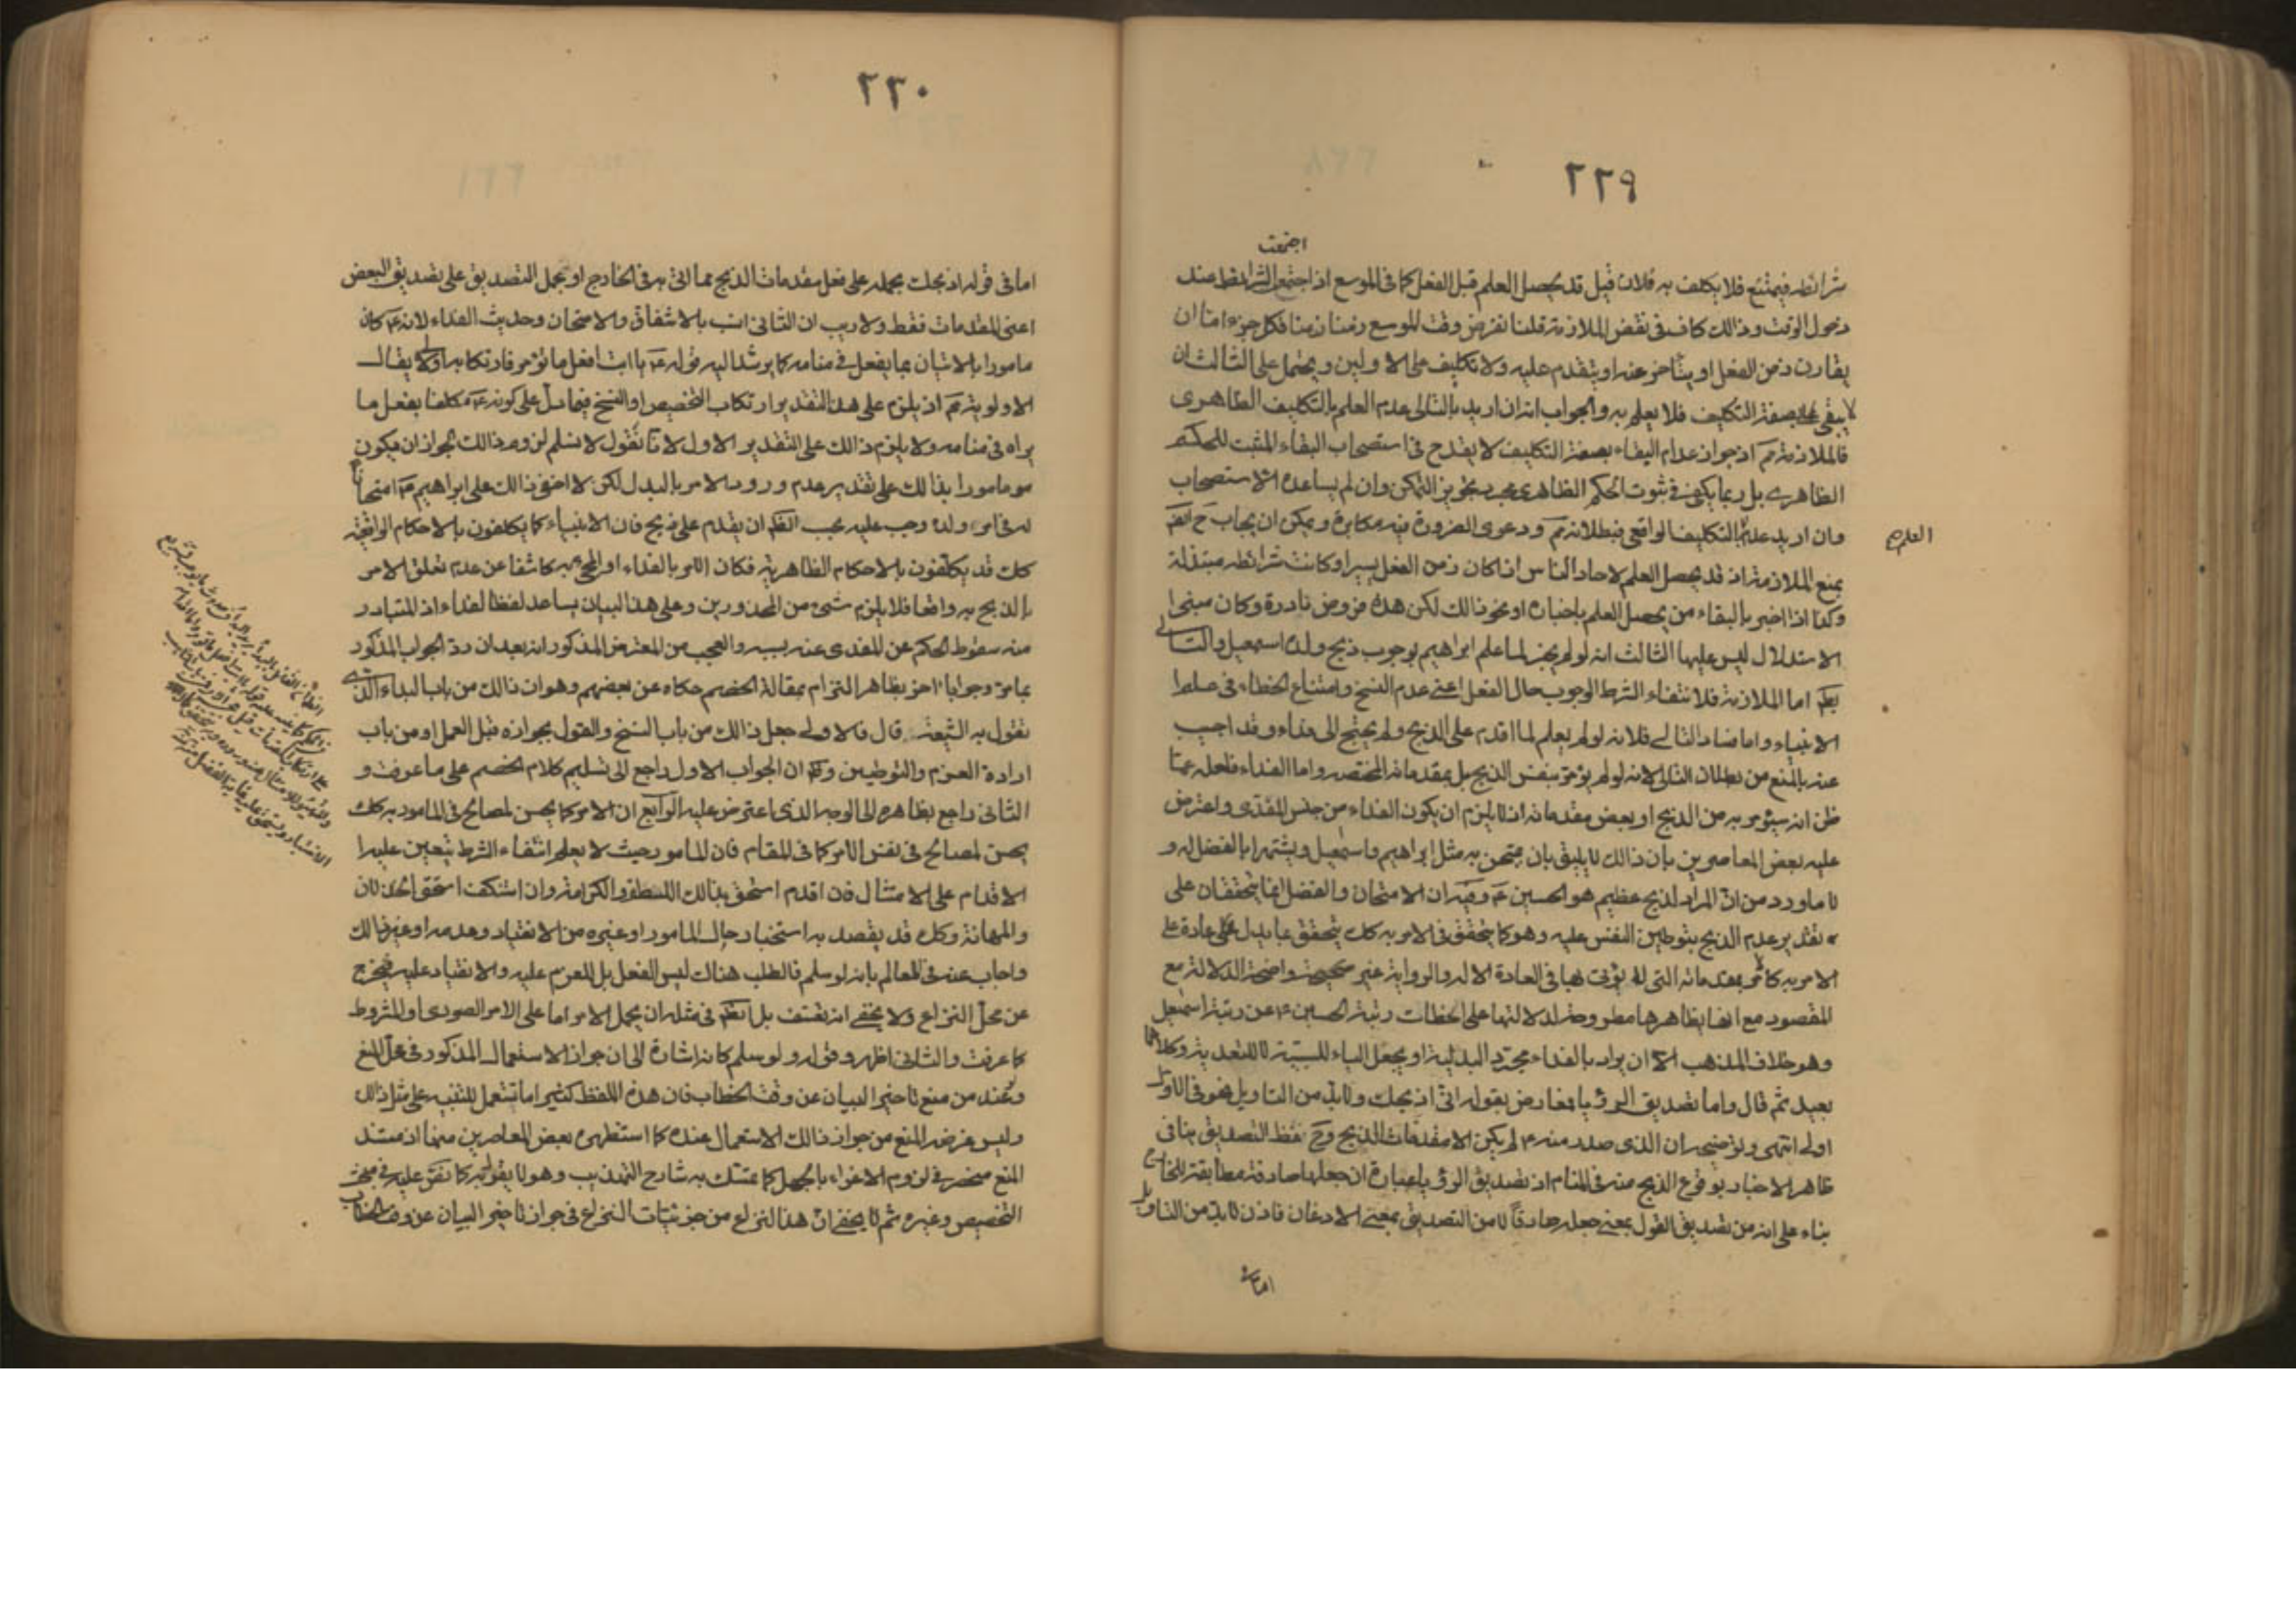 ٢٢٩
اجتمعت
شرائطه فيمتنع فلا يكلف به فلان قيل قد يحصل العلم قبل الفعل كما فى الموسع اذا اجتمع الشرائط عند
دخول الوقت وذالك كاف فى نقض الملازمة قلنا نفرض وقت الموسع زمنا زمنا فكل جزء اما ان
يقارن زمن الفعل او يتأخر عنه او يتقدم عليه ولا تكليف على الاولين ويحتمل على الثالث ان
لا يبقى بصفة التكليف فلا يعلم به والجواب انه ان اريد بالتالى عدم العلم بالتكليف الظاهرى
فالملازمة مم اذ جواز عدام البقاء بصفة التكليف لا يقدح فى استصحاب البقاء المثبت للحكم
الظاهرى بل ربما يكفى فى ثبوت الحكم الظاهرى مجرد تجويز التمكن وان لم يساعده الاستصحاب
وان اريد عدم بالتكليف الواقعى فبطلانه مم ودعوى الضرورة فيه مكابرة ويمكن ان يجاب ح ايضا
العلم صح
بمنع الملازمة اذ قد يحصل العلم لاحاد الناس اذا كان زمن الفعل يسيرا وكانت شرائطه مبتذلة
وكذا اذا اخبر بالبقاء من يحصل العلم باخباره او نحو ذالك لكن هذه فروض نادرة وكان مبنى
الاستدلال ليس عليها الثالث انه لو لم يجز لما علم ابراهيم بوجوب ذبح ولده اسمعيل والتالى
بط اما الملازمة فلانتفاء الشرط الوجوب حال الفعل اعنى عدم النسخ وامتناع الخطاء فى علم
الانبياء واما فساد التالى فلانه لو لم يعلم لما اقدم على الذبح ولم يحتج الى فداء وقد اجيب
عنه بالمنع من بطلان التالى لانه لم يؤمر بنفس الذبح بل بمقدماته المختصة واما الفداء فلعله عما
ظن انه سيؤمر به من الذبح او بعض مقدماته اذ لا يلزم ان يكون الفداء من جنس المفدى واعترض
عليه بعض المعاصرين بان ذالك لا يليق بان يمتحن به مثل ابراهيم واسمعيل ويشتهرا بالفضل له و
لا ما ورد من ان المراد لذبح عظيم هو الحسين ع وفيه ان الامتحان والفضل انما يتحققان على
تقدير عدم الذبح بتوطين النفس عليه وهو كما يتحقق فى الامر به كك يتحقق بما يدل على عادة على
الامر به كالامر بمقدماته التى لا يؤتى بها فى العادة الا له والرواية غير صحيحة واضحة الدلالة مع
المقصود مع انها بظاهرها مطروحة لدلالتها على انحطاط رتبة الحسين ع عن رتبة اسمعيل
وهو خلاف المذهب الا ان يراد بالفداء مجرد البدلية او يجعل الباء للسببية لا للتعدية وكلاهما
بعيد ثم قال واما تصديق الرؤيا فمعارض بقوله انى اذبحك ولا بد من التاويل فهو فى الاول
اولى انتهى وتوضيحه ان الذى صدر منه ع لم يكن الا مقدمات الذبح وح فقط التصديق ينافى
ظاهر الاخبار بوقوع الذبح منه فى المنام اذ تصديق الرؤيا عبارة ان جعلها صادقة مطابقة للخارج
بناء على انه من تصديق القول بمعنى جعله صادقا لا من التصديق بمعنى الاذعان فاذن لا بد من التاويل
اما فى
٢٣٠
اما فى قوله اذبحك بحمله على فعل مقدمات الذبح مما اتى به فى الخارج او بحمل التصديق على تصديق البعض
اعنى المقدمات فقط ولا ريب ان الثانى انسب بالاشفاق والامتحان وحديث الفداء لانه ع كان
مامورا بالاتيان بما يفعل فى منامه كما يرشد اليه قوله ع يا ابت افعل ما تؤمر فارتكابه اولى لا يقال
الاولوية مم اذ يلزم على هذا التقدير ارتكاب التخصيص او النسخ فيما دل على كونه ع مكلفا بفعل ما
يراه فى منامه ولا يلزم ذالك على التقدير الاول لانا نقول لا نسلم لزوم ذالك لجواز ان يكون
هو مامورا بذالك على تقدير عدم ورود الامر بالبدل لكن لا اخفى ذالك على ابراهيم ع امتحانا
له فى امر ولده وجب عليه بحسب الظ ان يقدم على ذبح فان الانبياء كما يكلفون بالاحكام الواقعية
كك قد يكلفون بالاحكام الظاهرية فكان الامر بالفداء او المجئ به كاشفا عن عدم تعلق الامر
بالذبح به واقعا فلا يلزم شئ من المحذورين وعلى هذا البيان يساعد لفظ الفداء اذ المتبادر
منه سقوط الحكم عن المفدى عنه بسببه والعجب من المعترض المذكور انه بعد ان رد الجواب المذكور
بما مر وجوابا اخر بظاهر التزام بمقالة الخصم حكاه عن بعضهم وهو ان ذالك من باب البداء الذى
نقول به الشيعة قال فالاولى جعل ذالك من باب النسخ والقول بجوازه قبل العمل او من باب
ارادة العزم والتوطين وفيه ان الجواب الاول راجع الى تسليم كلام الخصم على ما عرفت و
الثانى راجع بظاهره الى الوجه الذى اعترض عليه الرابع ان الامر كما يحسن لمصالح فى المامور به كك
يحسن لمصالح فى نفس الامر كما فى المقام فان المامور حيث لا يعلم انتفاء الشرط يتعين عليه
الاقدام على الامتثال فان اقدم استحق بذالك اللطف والكرامة وان استنكف استحق الخذلان
والمهانة وكك قد يقصد به استخبار حال المامور او غيره من الانقياد وعدمه او غير ذالك
واجاب عنه فى المعالم بانه لو سلم فالطلب هناك ليس الفعل بل للعزم عليه والانقياد عليه فيخرج
عن محل النزاع ولا يخفى انه تعسف بل الظ فى مثله ان يحمل الامر اما على الامر الصورى او المشروط
كما عرفت والثانى اظهر وقوله ولو سلم كانه اشارة الى ان جواز الاستعمال المذكور فى محل المنع
وعند من منع تاخير البيان عن وقت الخطاب فان هذه اللفظ كثيرا ما تستعمل للتنبيه على مثل ذالك
وليس غرضه المنع من جواز ذالك الاستعمال عنده كما استظهره بعض المعاصرين منها اذ مستند
المنع منحصر فى لزوم الاغراء بالجهل كما تمسك به شارح التهذيب وهو لا يقول به كما نص عليه فى مبحث
التخصيص وغيره ثم لا يخفى ان هذا النزاع من جزئيات النزاع فى جواز تاخير البيان عن وقت الخطاب